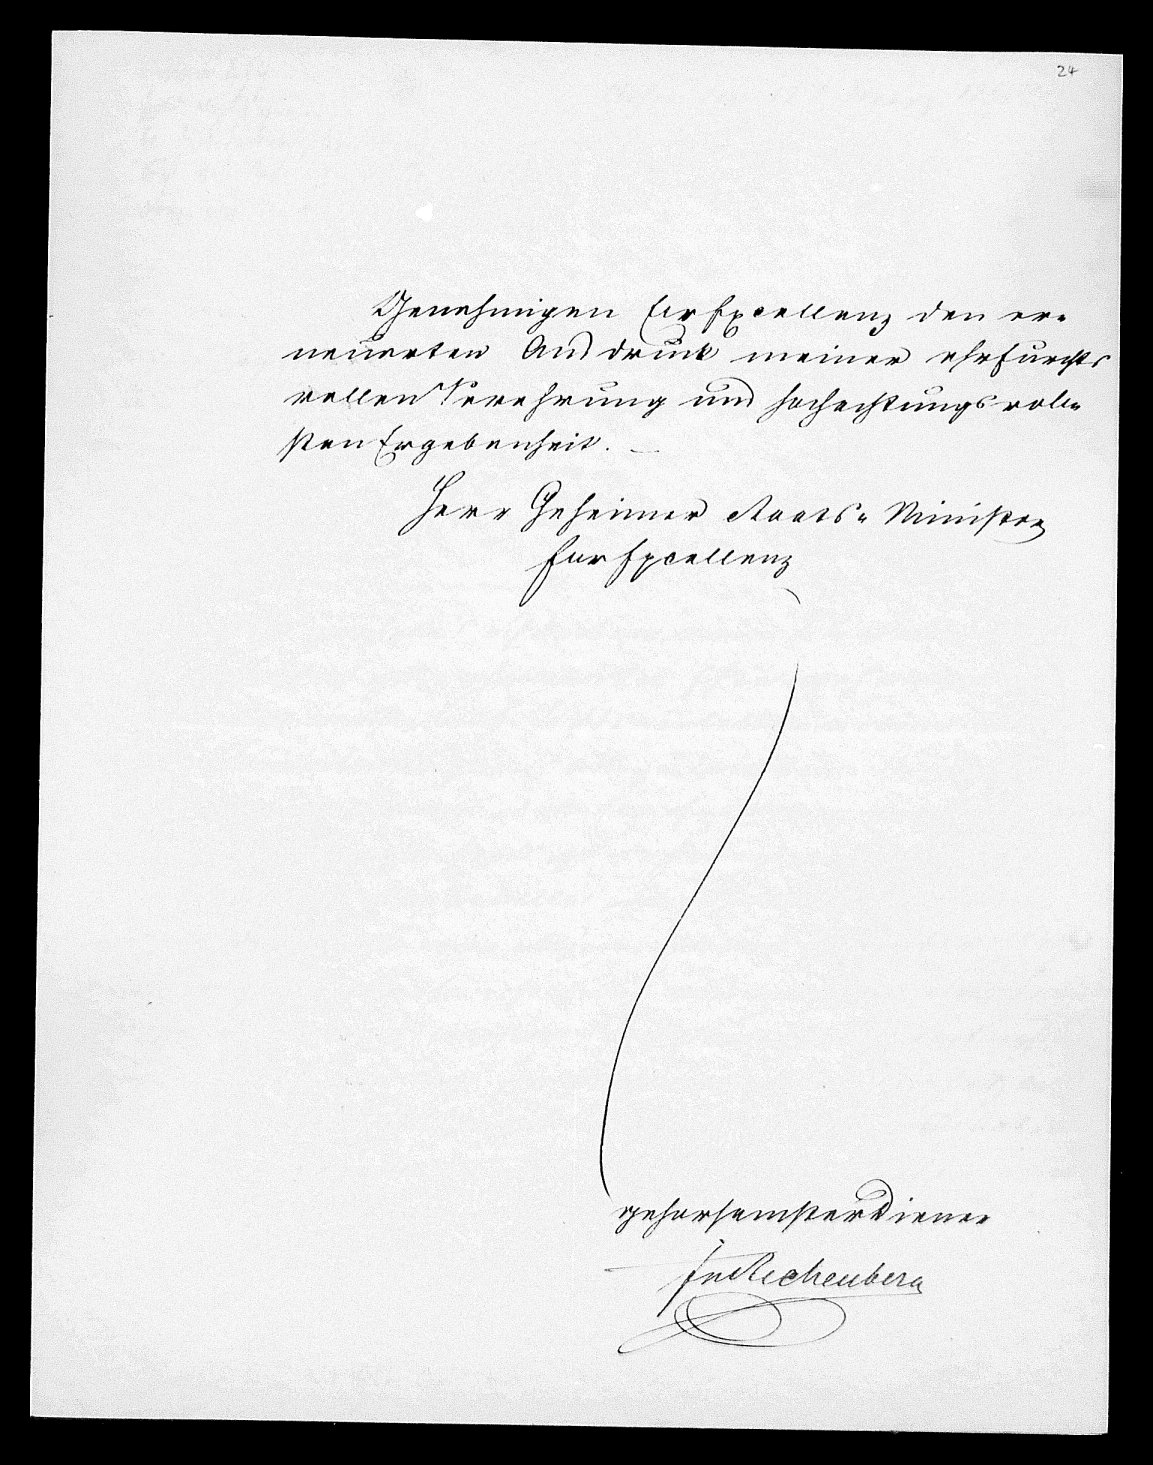 24
Genehmigen Eur Excellenz den er=
neuerten Ausdruck meiner ehrfurchts
vollen Verehrung und hochachtungsvoll=
sten Ergebenheit. —
Herr Geheimer Staats= Minister
Eur Excellenz
gehorsamster Diener
Rechenberg